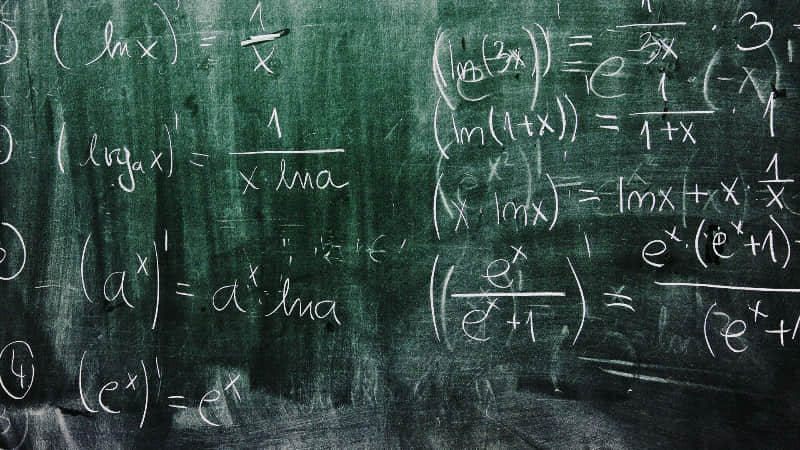 (ln x)' = 1/x
(log_a x)' = 1/(x · ln a)
(a^x)' = a^x · ln a
④ (e^x)' = e^x
(ln(3x))' = 1/3x · 3
(ln(1+x))' = 1/(1+x) · 1
(x · ln x)' = ln x + x · 1/x
(e^x/(e^x+1))' = e^x·(e^x+1)-/(e^x+1